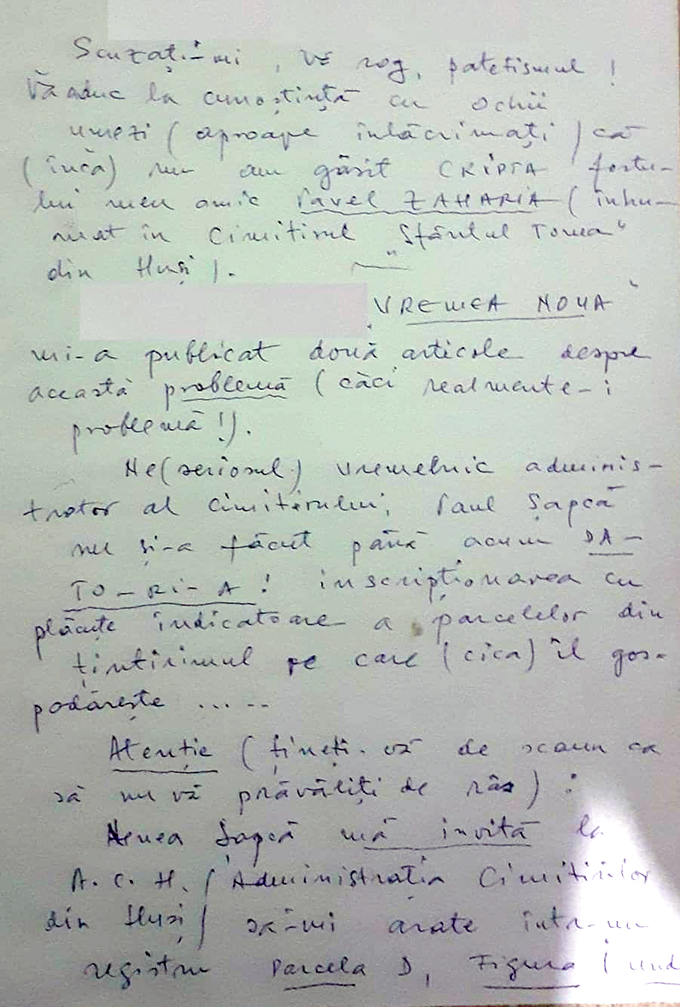 Scuzați-mi, vă rog, patetismul!
Vă aduc la cunoștință cu ochii
umezi (aproape înlăcrimați) că
(încă) nu am găsit CRIPTA fostu-
lui meu amic Pavel ZAHARIA (înhu-
mat în Cimitirul "Sfântul Toma"
din Huși).
"VREMEA NOUĂ"
mi-a publicat două articole despre
această problemă (căci realmente-i
problemă!).
Ne(seriosul) vremelnic adminis-
trator al cimitirului, Paul Șapcă
nu și-a făcut până acum DA-
TO-RI-A! inscripționarea cu
plăcuțe indicatoare a parcelelor din
țintirimul pe care (cica) îl gos-
podărește .....
Atenție (țineți-vă de scaun ca
să nu vă prăvăliți de râs):
Nenea Șapcă mă invită la
A.C.H. (Administrația Cimitirilor
din Huși) să-mi arate într-un
registru Parcela D, Figura (und